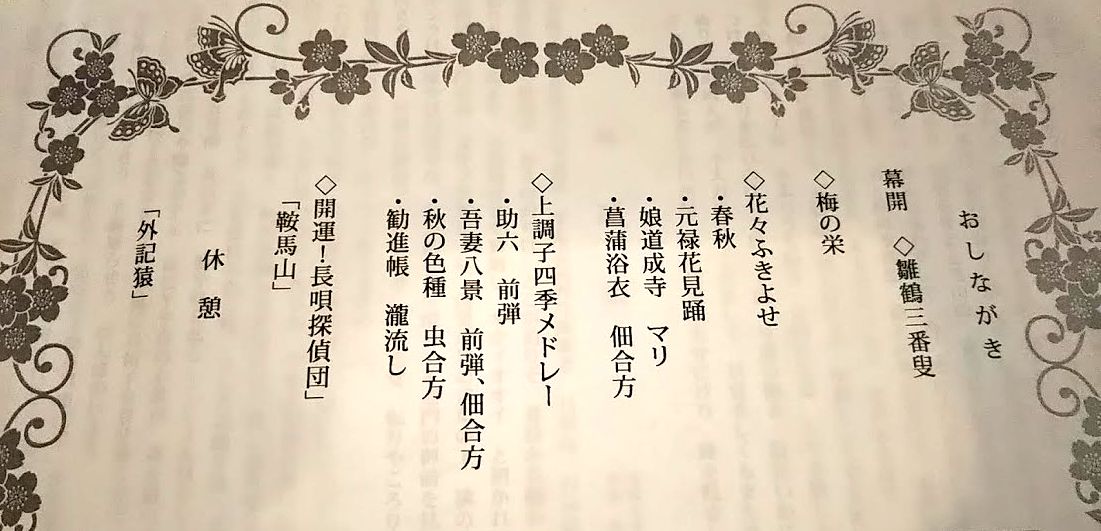 おしながき
幕開　◇雛鶴三番叟
◇梅の栄
◇花々ふきよせ
・春秋
・元禄花見踊
・娘道成寺　マリ
・菖蒲浴衣　佃合方
◇上調子四季メドレー
・助六　前弾
・吾妻八景　前弾、佃合方
・秋の色種　虫合方
・勧進帳　瀧流し
◇開運！長唄探偵団」
「鞍馬山」
休憩
「外記猿」